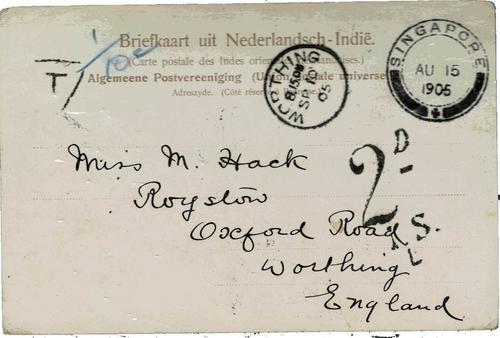 Briefkaart uit Nederlandsch-Indië.
(Carte postale des Indes orient
Algemeene Postvereeniging (Un
Adreszyde. (Côté
T
1/10
WORTHING
8.15 PM
SP 10
05
SINGAPORE
AU 15
1905
2D
Miss M. Hack
Royston
Oxford Road
Worthing
England